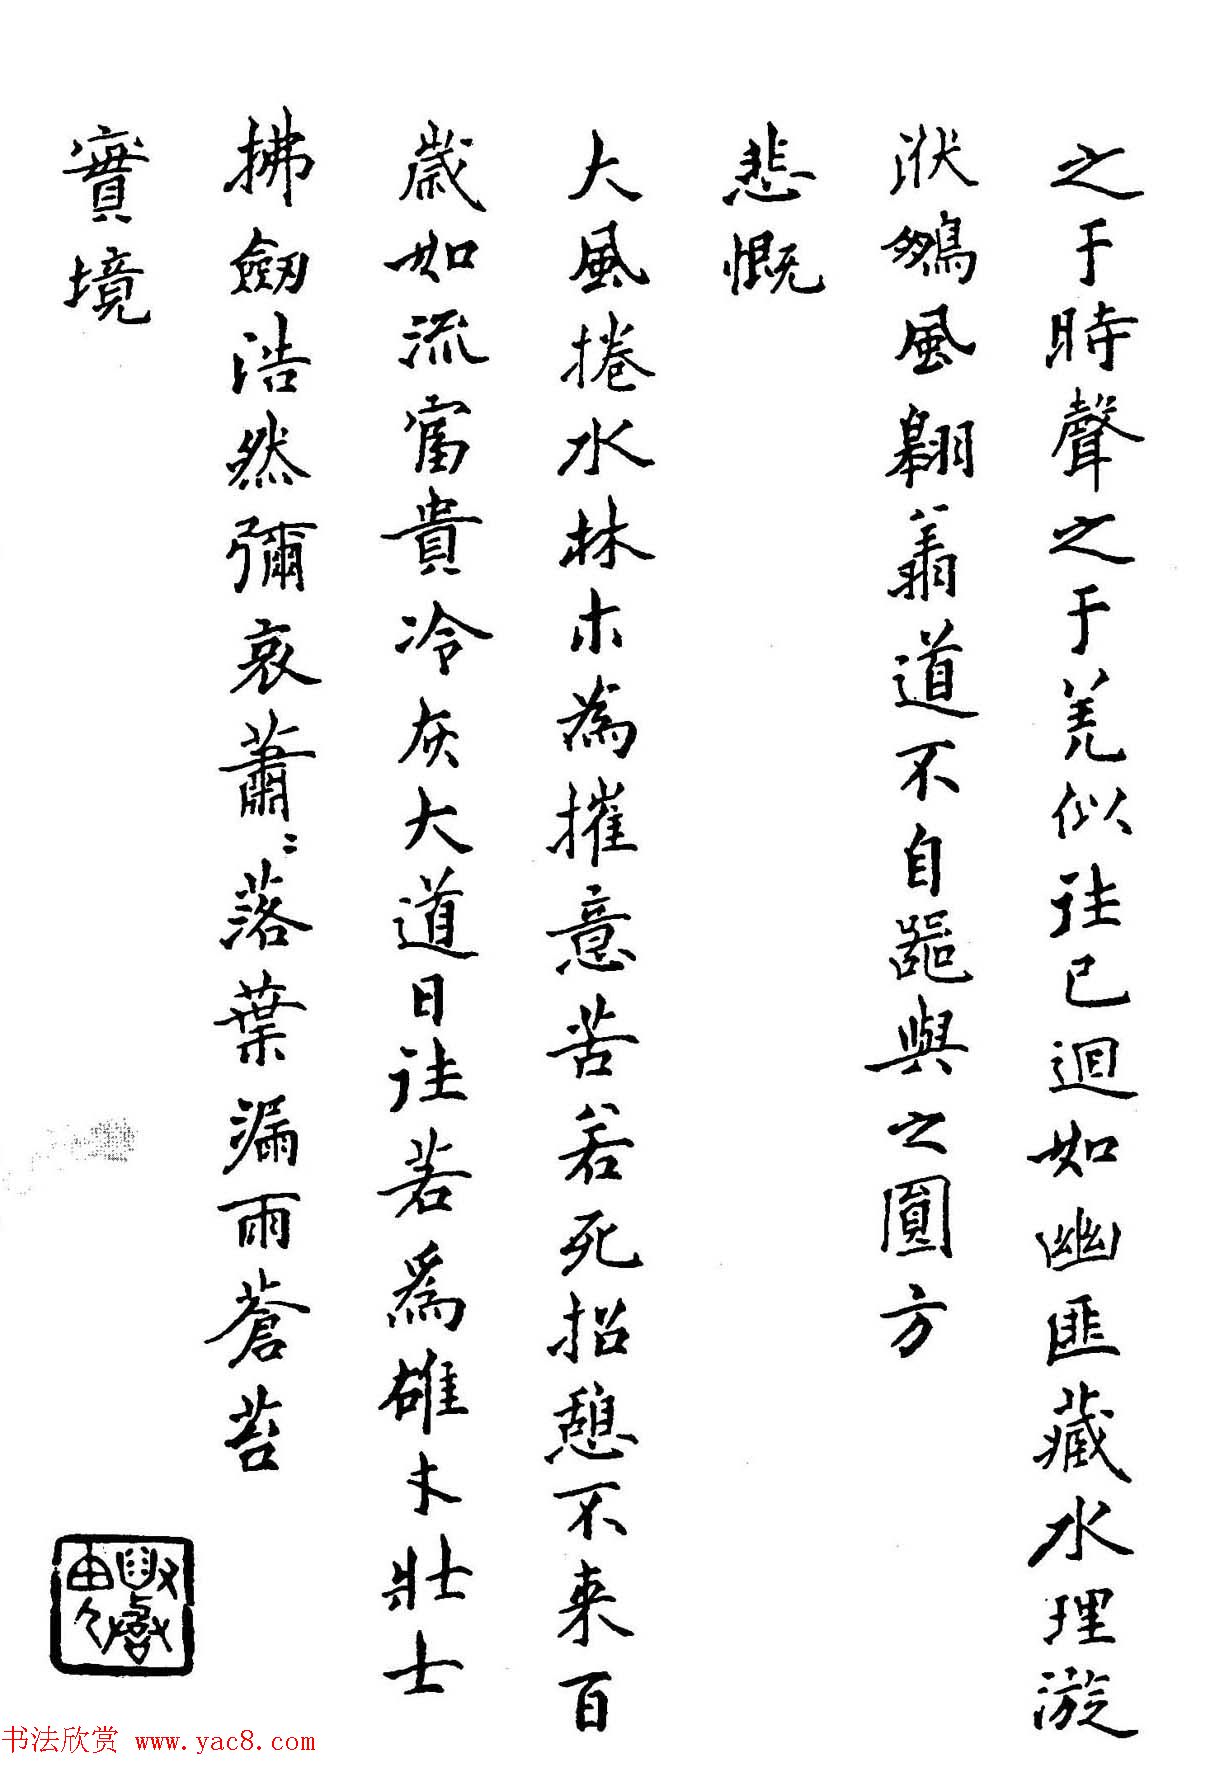 之于時聲之于羌似往已迴如幽匪藏水理漩
洑鵬風翱翔道不自器與之圓方
悲慨
大風捲水林木為摧意苦若死招憩不来百
歲如流富貴冷灰大道日往若為雄才壯士
拂劒浩然彌哀蕭〻落葉漏雨蒼苔
實境
书法欣赏 www.yac8.com